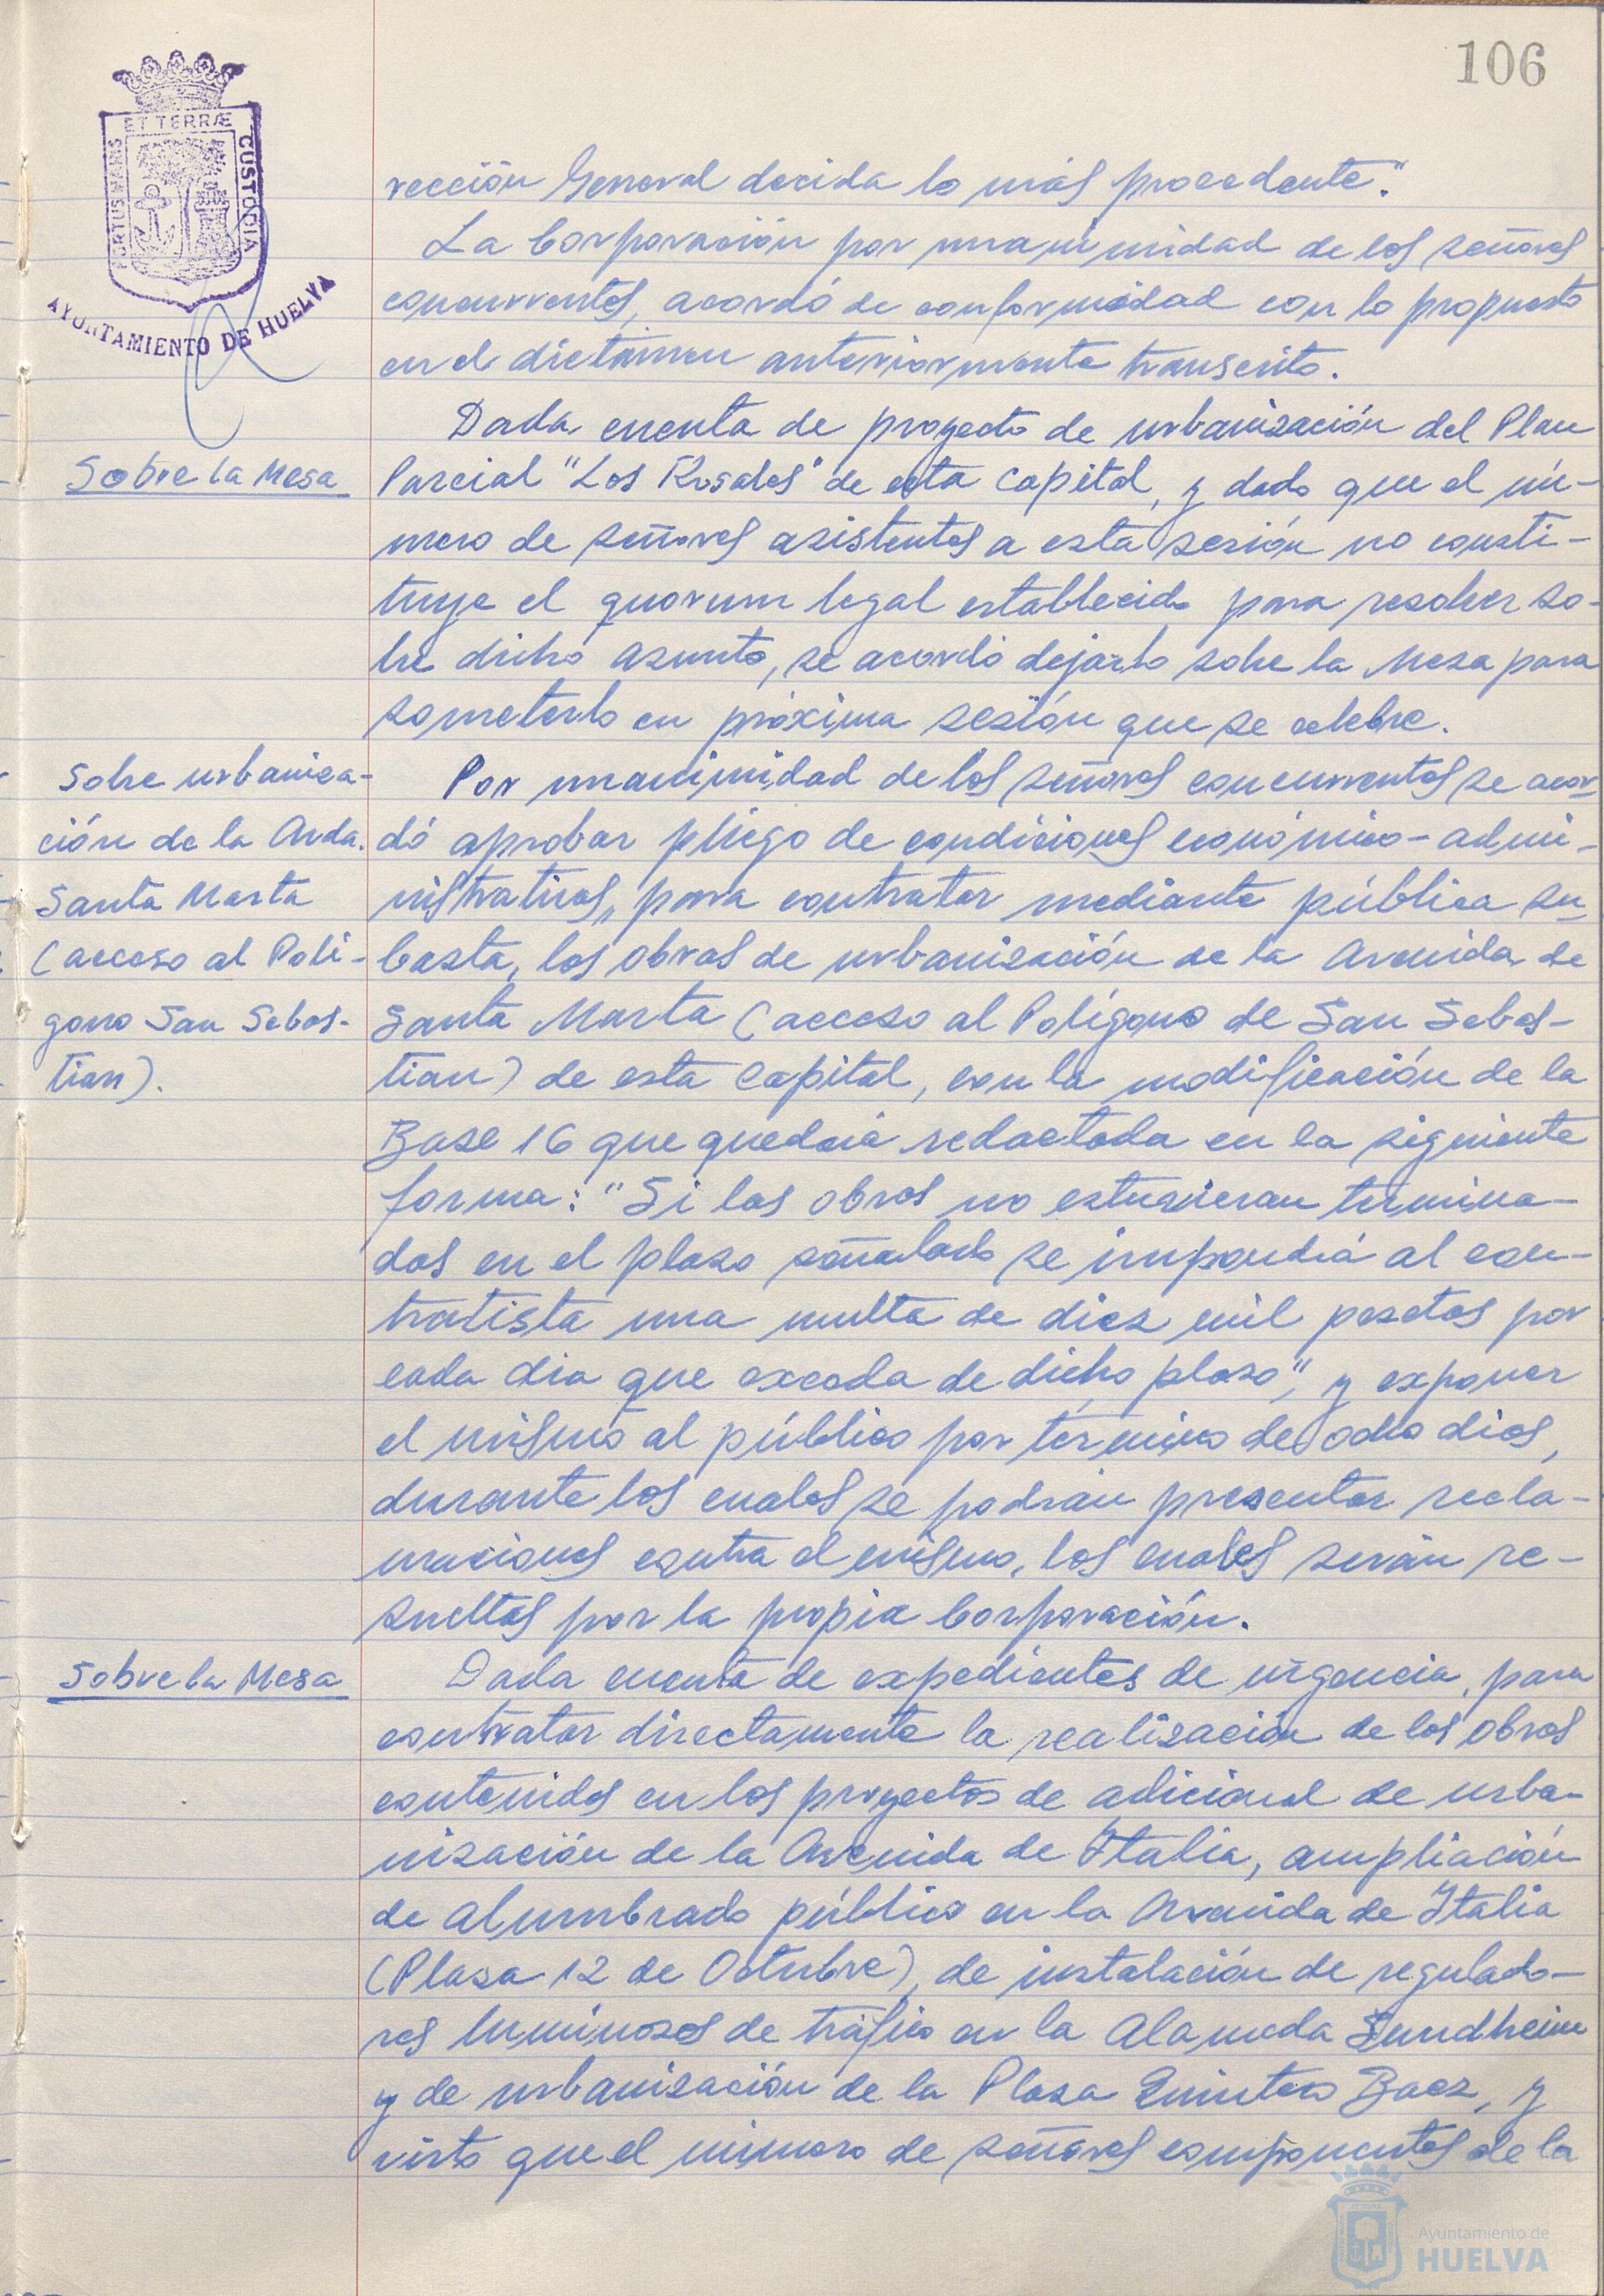 106
PORTUS MARIS
ET TERRÆ
CUSTODIA
AYUNTAMIENTO DE HUELVA
rección General decida lo más procedente".
La Corporación por unanimidad de los señores
concurrentes, acordó de conformidad con lo propuesto
en el dictamen anteriormente transcrito.
Sobre la Mesa
Dada cuenta de proyecto de urbanización del Plan
Parcial "Los Rosales" de esta capital, y dado que el nú-
mero de señores asistentes a esta sesión no consti-
tuye el quorum legal establecido para resolver so-
bre dicho asunto, se acordó dejarlo sobre la Mesa para
someterlo en próxima sesión que se celebre.
Sobre urbaniza-
ción de la Avda.
Santa Marta
(acceso al Polí-
gono San Sebas-
tian).
Por unanimidad de los señores concurrentes se acor-
dó aprobar pliego de condiciones económico-admi-
nistrativas, para contratar mediante pública su-
basta, las obras de urbanización de la Avenida de
Santa Marta (acceso al Polígono de San Sebas-
tian) de esta capital, con la modificación de la
Base 16 que quedará redactada en la siguiente
forma: "Si las obras no estuvieran termina-
das en el plazo señalado se impondrá al con-
tratista una multa de diez mil pesetas por
cada dia que exceda de dicho plazo", y exponer
el mismo al público por término de ocho dias,
durante los cuales se podrán presentar recla-
maciones contra el mismo, las cuales serán re-
sueltas por la propia Corporación.
Sobre la Mesa
Dada cuenta de expedientes de urgencia, para
contratar directamente la realización de las obras
contenidas en los proyectos de adicional de urba-
nización de la Avenida de Italia, ampliación
de alumbrado público en la Avenida de Italia
(Plaza 12 de Octubre), de instalación de regulado-
res luminosos de tráfico en la Alameda Sundheim
y de urbanización de la Plaza Quintero Baez, y
visto que el número de señores componentes de la
Ayuntamiento de
HUELVA